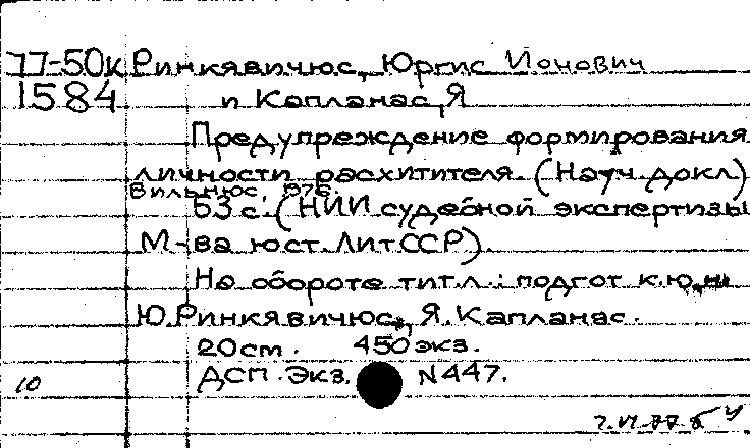 77-50к Ринкявичюс, Юргис Ионович
1584 и Капланас, Я
Предупреждение формирования
личности расхитителя. (Науч. докл)
Вильнюс, 1976.
53 с. (НИИ судебной экспертизы
М-ва юст. ЛитССР).
На обороте тит.л.: подгот к.ю.н.
Ю. Ринкявичюс, Я. Капланас.
20см. 450 экз.
10 ДСП. Экз. N 447.